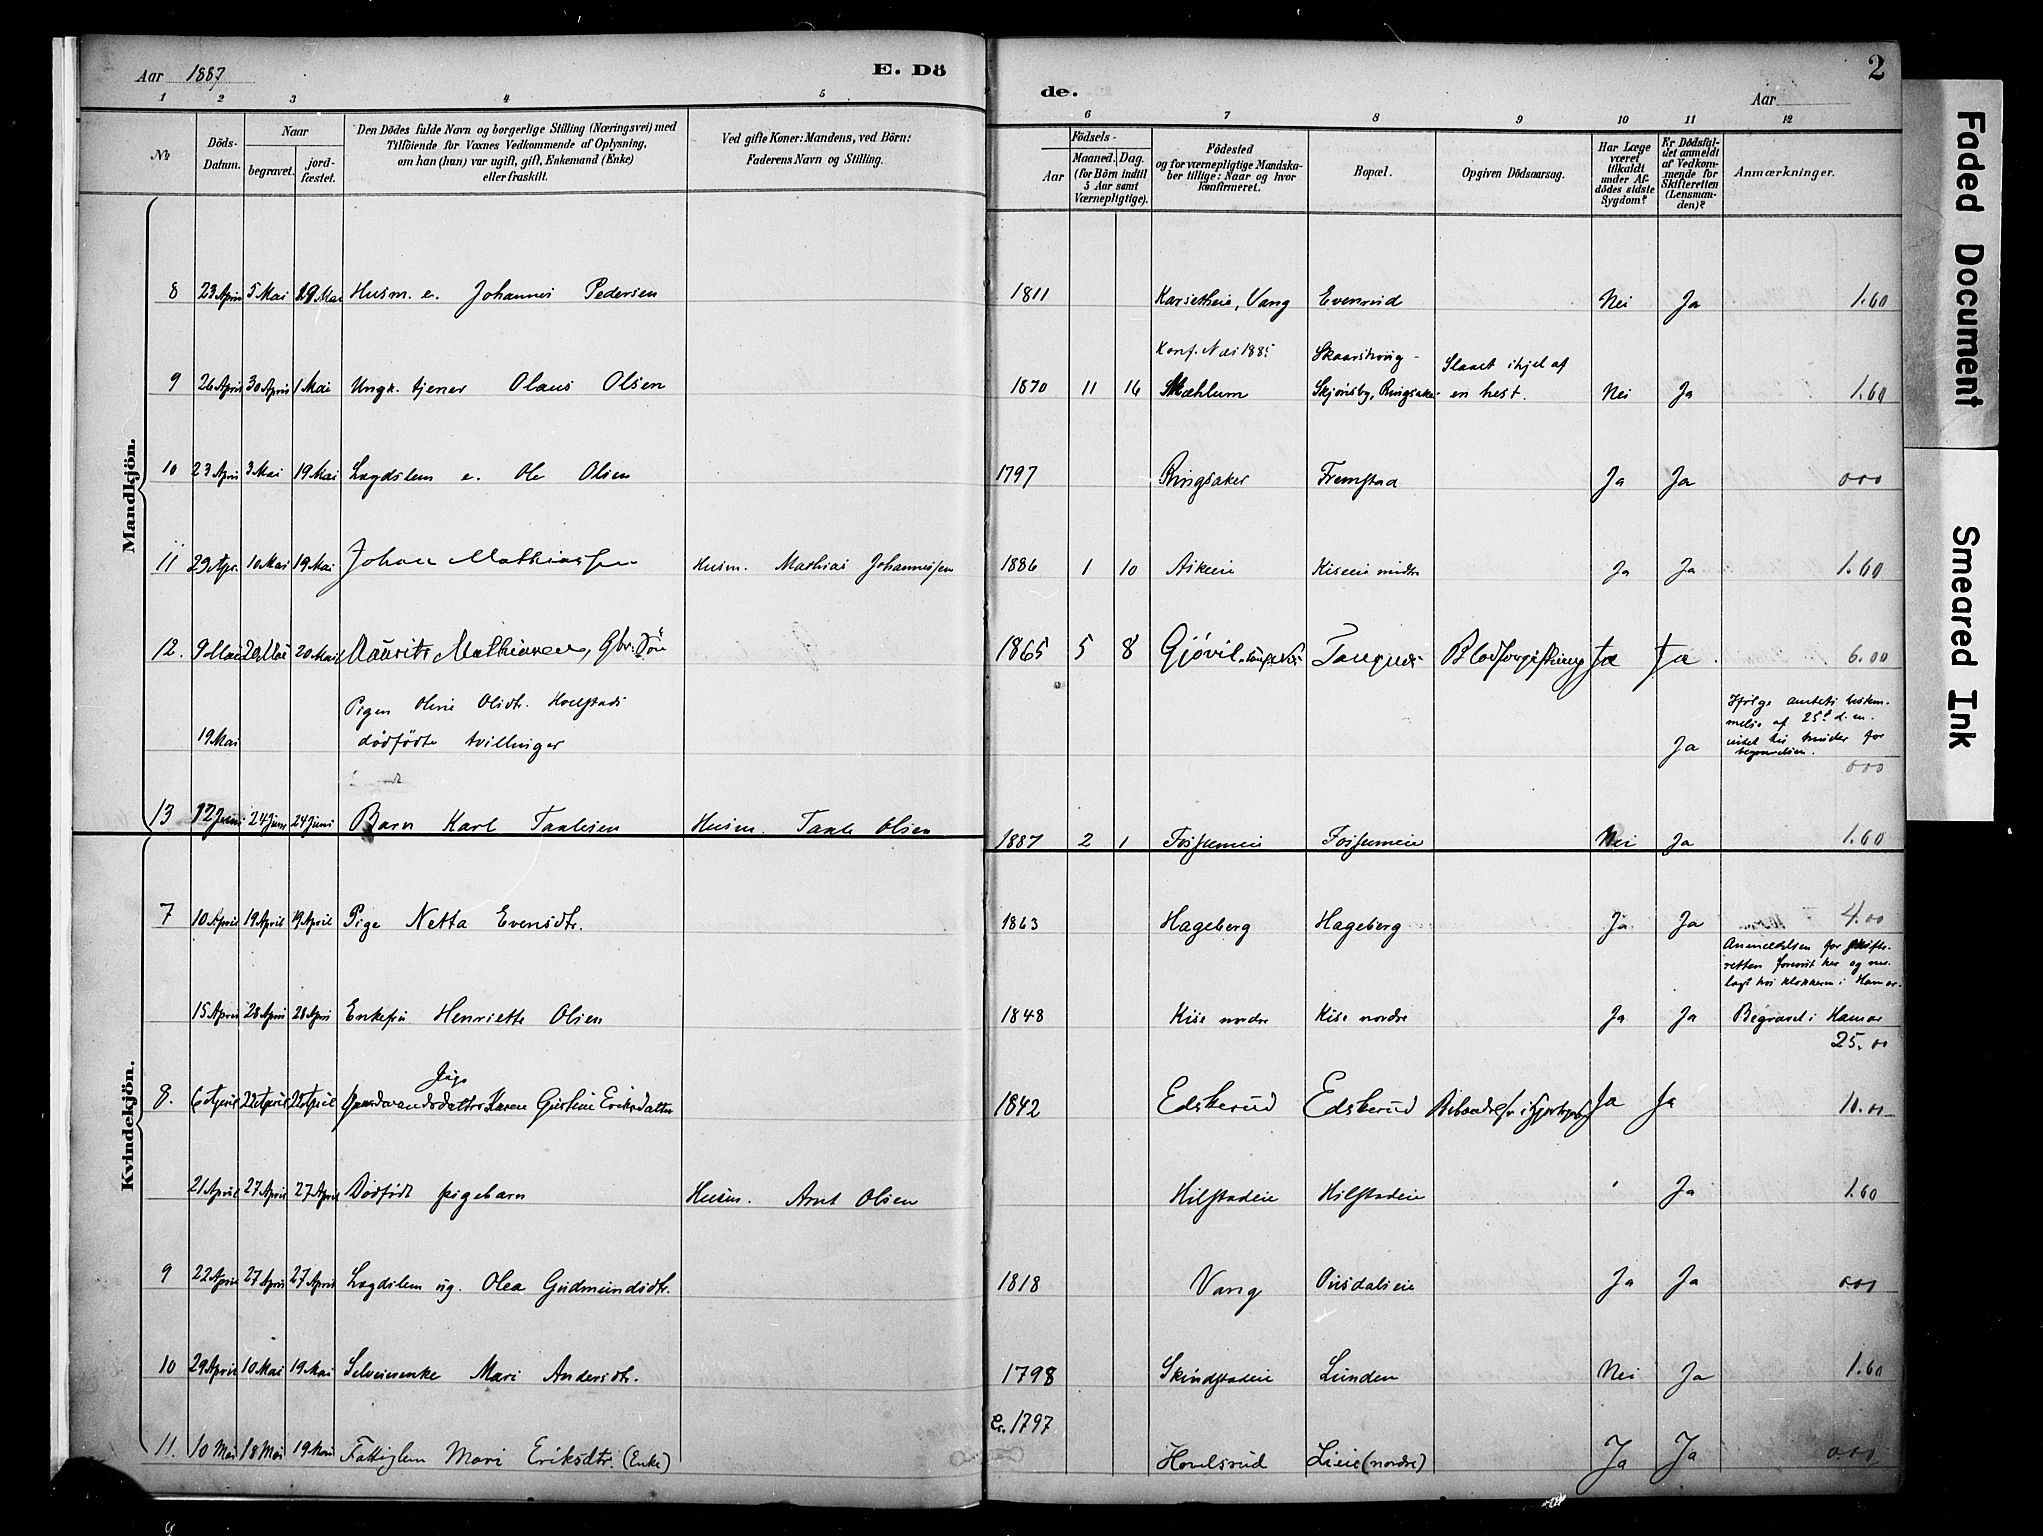 Aar 1887
E. Dö
de.
Aar
2
1 2 3 4 5 6 7 8 9 10 11 12
No
Döds-
Datum.
Naar
begravet.
jord-
fæstet.
Den Dödes fulde Navn og borgerlige Stilling (Næringsvei) med
Tilföiende for Voxnes Vedkommende af Oplysning,
om han (hun) var ugift, gift, Enkemand (Enke)
eller fraskilt.
Ved gifte Koner: Mandens, ved Börn:
Faderens Navn og Stilling.
Födsels-
Aar
Maaned. Dag.
(for Börn indtil
5 Aar samt
Værnepligtige).
Födested
og for værnepligtige Mandska-
ber tillige: Naar og hvor
konfirmeret.
Bopæl.
Opgiven Dödsaarsag.
Har Læge
været
tilkaldt
under Af-
dödes sidste
Sygdom?
Er Dödsfal-
det anmeldt
af Vedkom-
mende for
Skifteretten
(Lensman-
den)?
Anmærkninger.
Mandkjön.
8 23 April 5 Mai 19 Mai Husm. e. Johannes Pedersen 1811 Karsetheie, Vang Evenrud Nei Ja 1.60
Konf. Næs 1885 Skaarshoug - Slaaet ihjel af
9 26 April 30 April 1 Mai Ungk. tjener Olaus Olsen 1870 11 16 Mæhlum Skjønsby, Ringsaker en hest. Nei Ja 1.60
10 23 April 3 Mai 19 Mai Lægdslem e. Ole Olsen 1797 Ringsaker Fremstad Ja Ja 0.00
11 29 Apr. 10 Mai 19 Mai Johan Mathiassen Husm. Mathias Johannessen 1886 1 10 Askeie Kiseeie nedre Ja Ja 1.60
12. 9 Mai 20 Mai 20 Mai Maurits Mathiasen, Gbr. Søn 1865 5 8 Gjøvik Tangnes Blodforgiftning Ja Ja 6.00
Pigen Oline Olsdtr. Hoelstads
19 Mai dödfödte tvillinger Ja
Ifølge amtets bestem-
melse af 25de d. m.
0.00
13 12 Juni 24 Juni 24 Juni Barn Karl Taalesen Husm. Taale Olsen 1887 2 1 Fossumeie Fossumeie Nei Ja 1.60
Kvindekjön.
7 10 April 19 April 19 April Pige Netta Evensdtr. 1863 Hageberg Hageberg Ja Ja 4.00
Anmeldelsen for skifte-
retten
15 April 28 April 28 April Enkefru Henriette Olsen 1848 Kise nordre Kise nordre Ja Ja Begravet i Hamar
25.00
Pige
8. 6 April 22 April 22 April Gaardmandsdatter Karen Gustine Eriksdatter 1842 Edskerud Edskerud Ja Ja 10.00
21 April 27 April 27 April Dødfødt pigebarn Husm. Arnt Olsen Hilstadeie Hilstadeie Ja 1.60
9 22 April 27 April 27 April Lægdslem ug. Olea Gudmundsdtr. 1818 Vang Ousdalseie Ja Ja 0.00
10 29 April 10 Mai 19 Mai Selveierenke Mari Andersdtr. 1798 Skindstadeie Lunden Nei Ja 1.60
Cr. 1797
11. 10 Mai 18 Mai 19 Mai Fattiglem Mari Eriksdtr. (Enke) Hovelsrud Lieie (nordre) Ja Ja 0.00
Faded Document
Smeared Ink